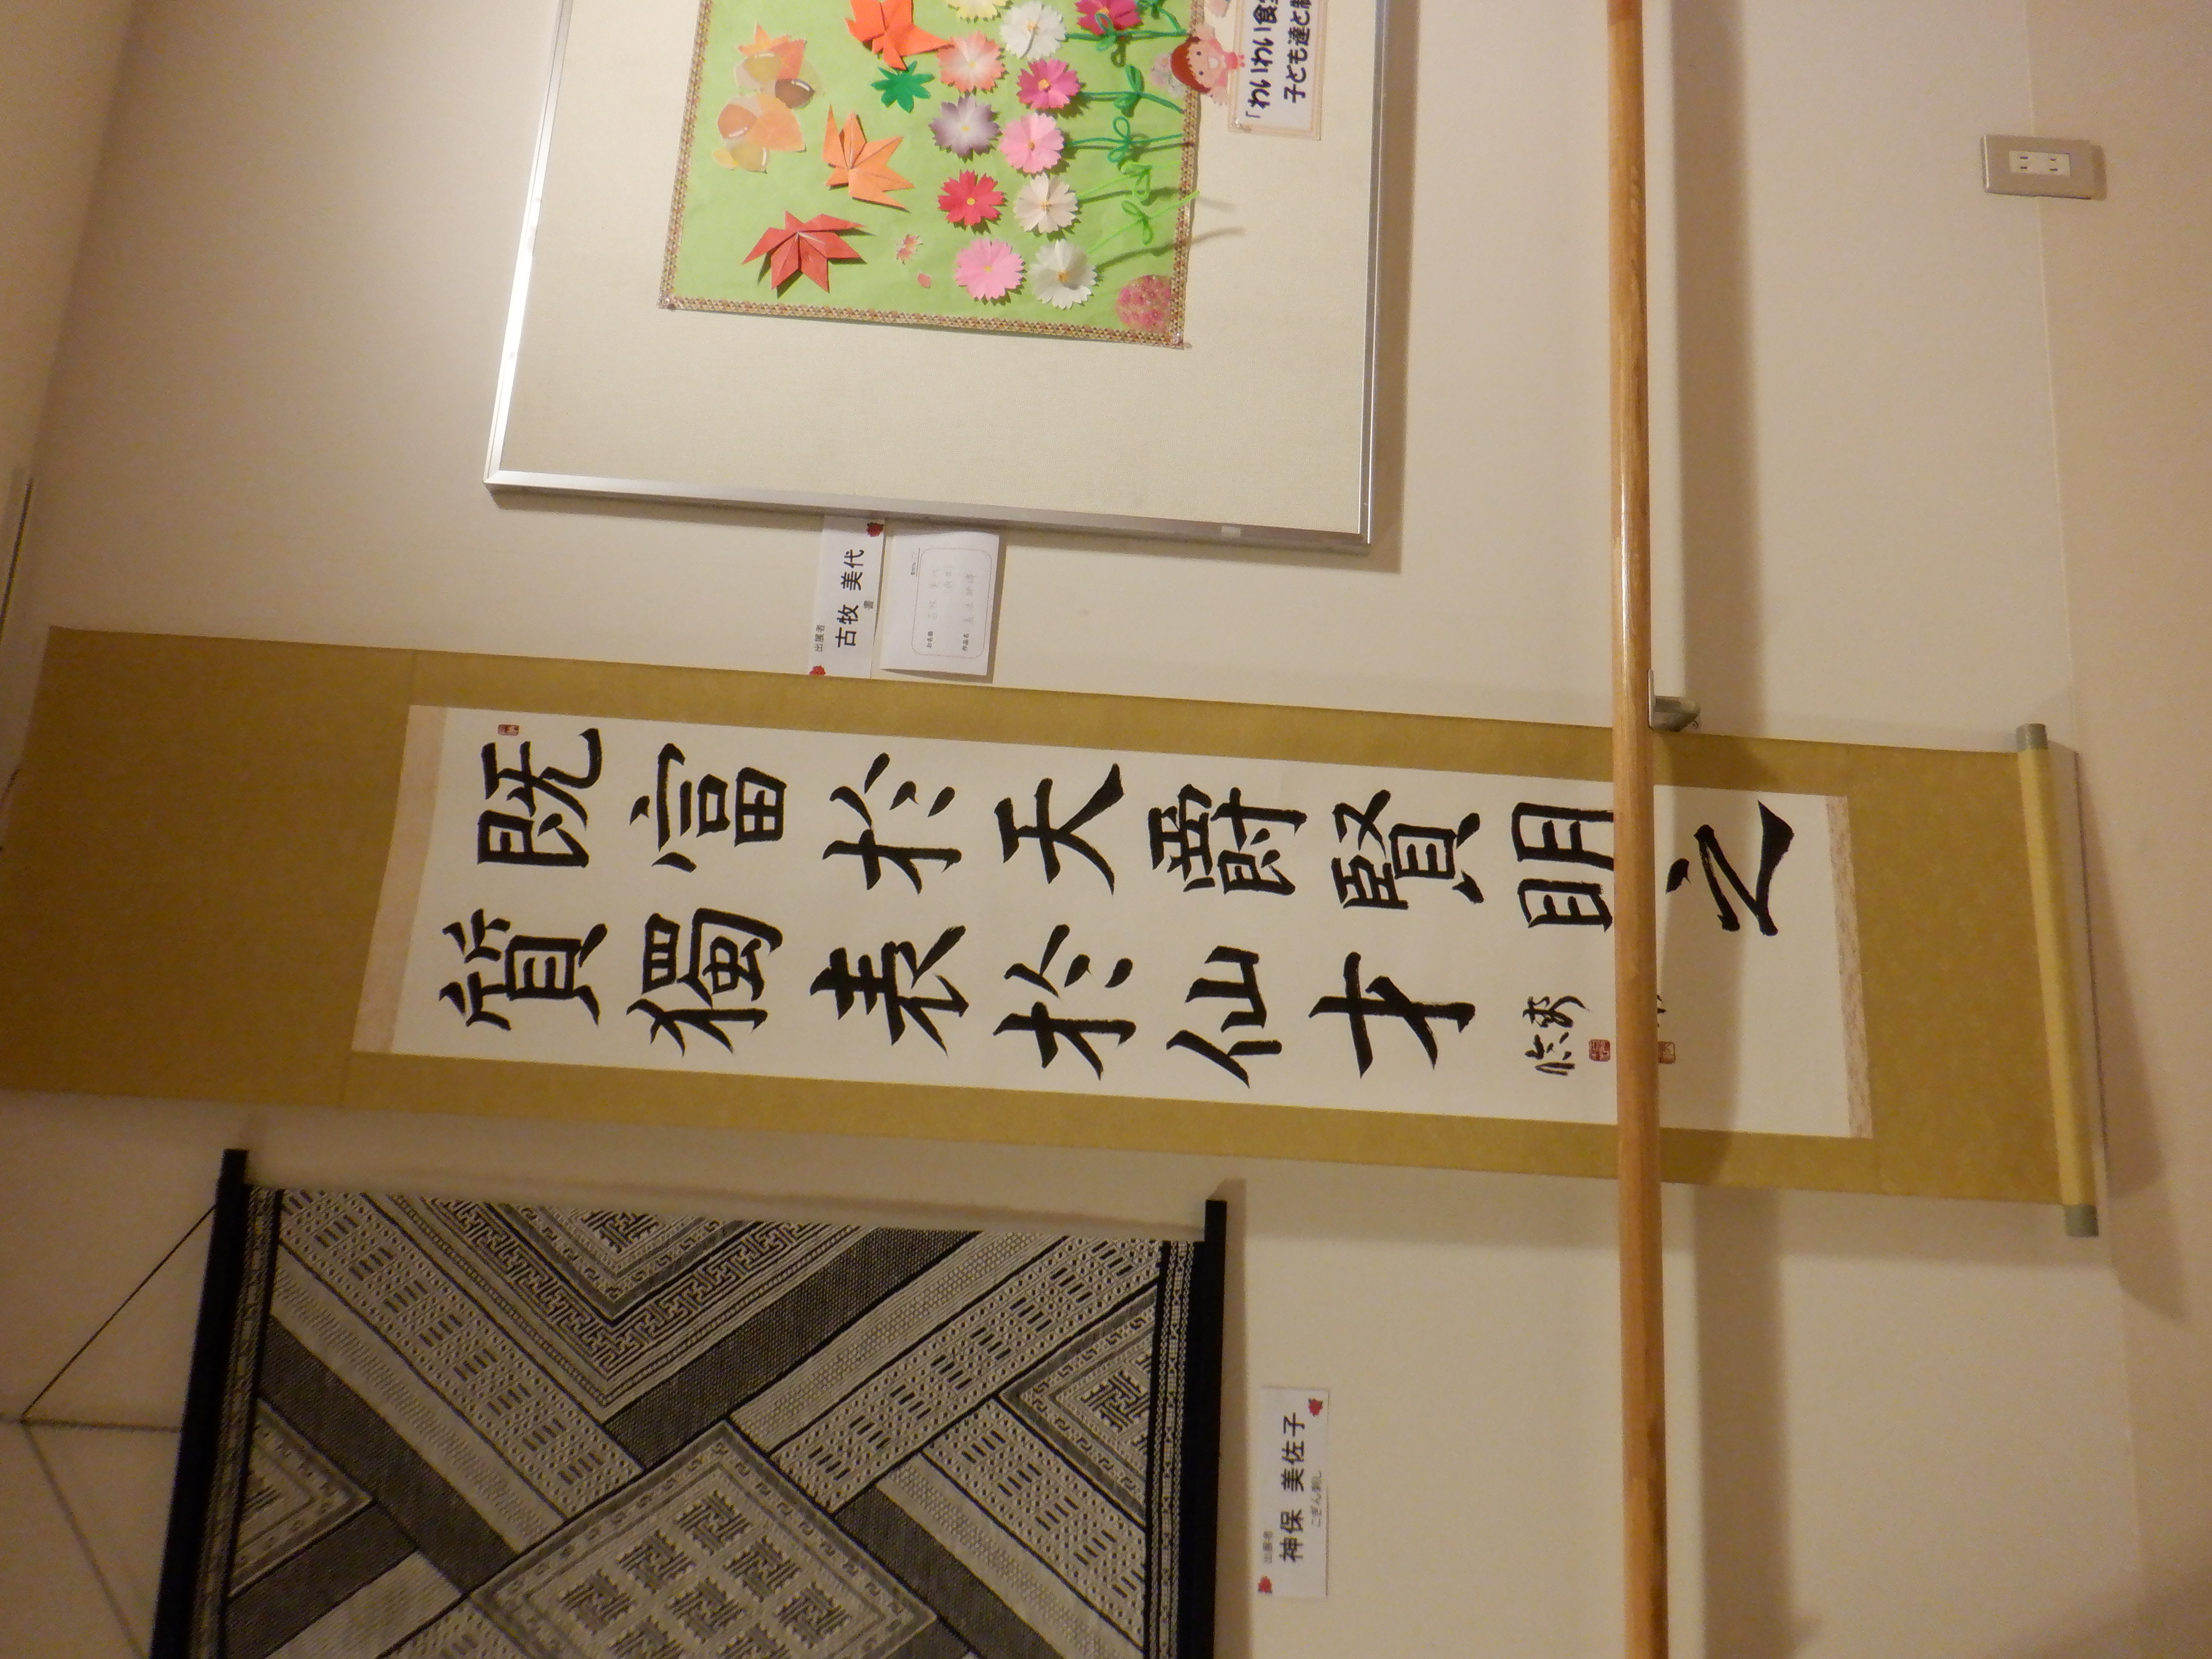 既富於天爵賢明之
質獨表於仙才
出展者
古牧 美代
書
お名前
作品名
「わいわい食
子ども達と制
出展者
神保 美佐子
こぎん刺し